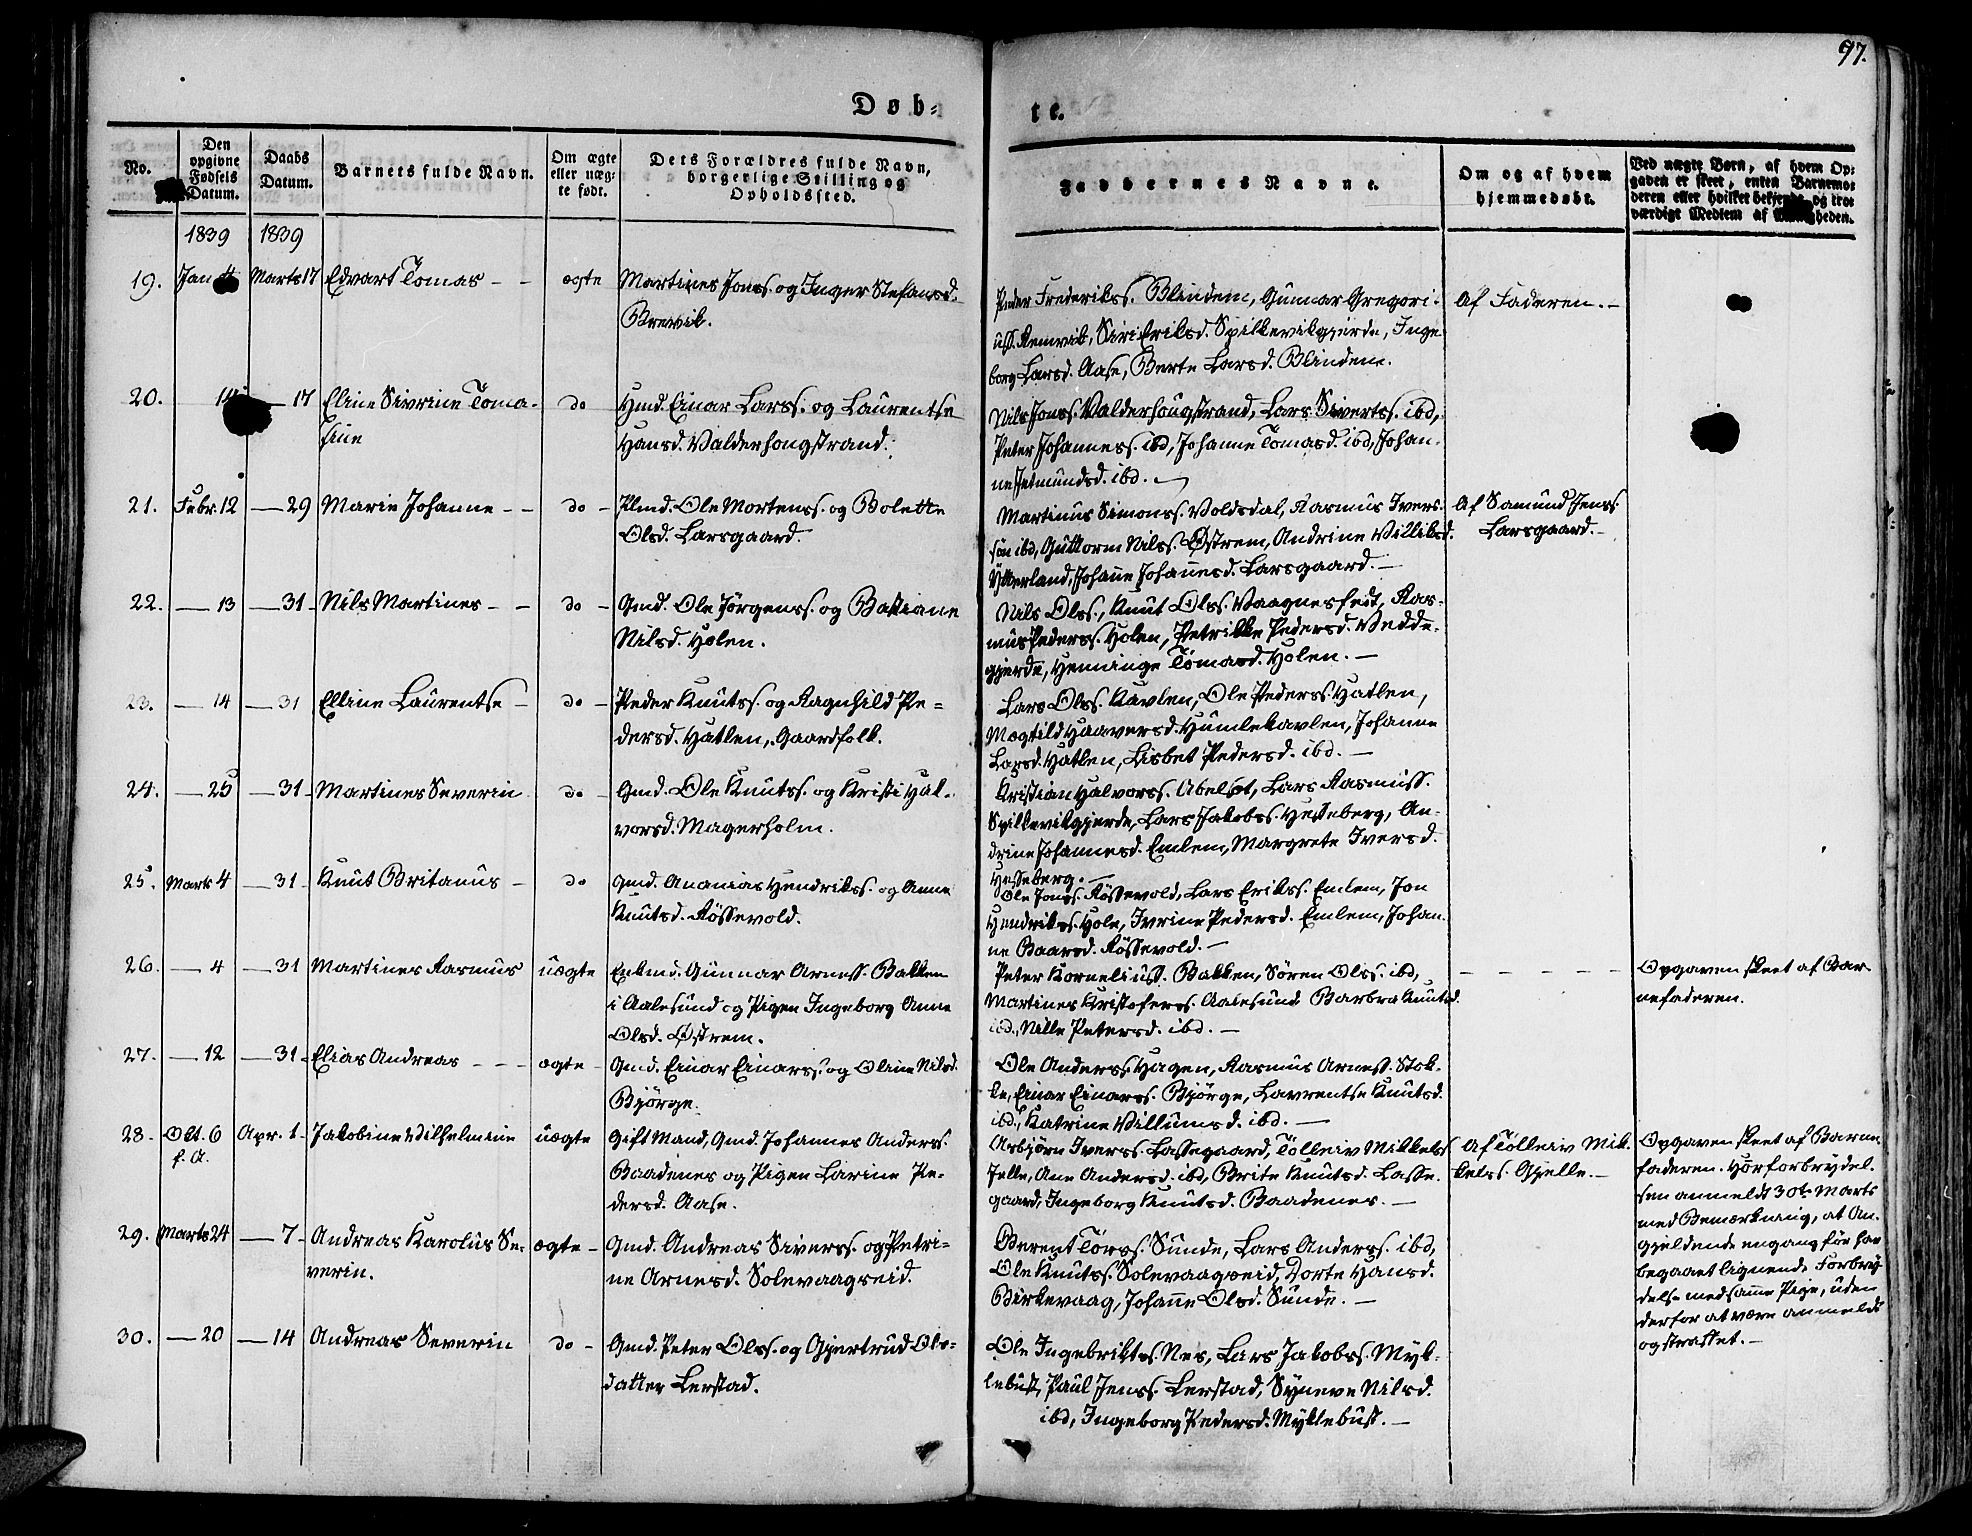 97.
Døb-
te.
No.
Den opgivne Fødsels Datum.
Daabs Datum.
Barnets fulde Navn.
Om ægte eller uægte født.
Dets Forældres fulde Navn, borgerlige Stilling og Opholdssted.
Faddernes Navne.
Om og af hvem hjemmedøbt.
Ved uægte Børn, af hvem Opgaven er skeet, enten Barnemoderen eller hvilket bekjendt og troværdigt Medlem af Menigheden.
1839 1839
19. Jan Marts 17 Edvart Tomas - - ægte Martines Jonss. og Inger Stefansd.
Brevik.
Peder Frederikss. Blindem, Gunnar Gregori-
uss. Remvik, Siri Eriksd. Spilkevikgjerde, Inge-
borg Larsd. Aase, Berte Larsd. Blindem.
Af Faderen. -
20. 14 — 17 Eline Sivrine Toma-
sine
do Hmd. Einar Larss. og Laurentse
Hansd. Valderhougstrand.
Nils Jonss. Valderhougstrand, Lars Sivertss. ibd,
Peter Johanness. ibd, Johanne Tomasd. ibd, Johan-
ne Jetmundsd. ibd. -
21. Febr. 12 — 29 Marie Johanne - - do - Plmd. Ole Mortenss. og Bolette
Olsd. Larsgaard.
Martinus Simonss. Voldsdal, Rasmus Ivers-
søn ibd, Guttorm Nilss. Østrem, Andrine Villiksd.
Ytterland, Johanne Johannesd. Larsgaard. -
Af Samund Jenss.
Larsgaard. -
22. — 13 — 31 - Nils Martines - - do - Gmd. Ole Jørgenss. og Bastiane
Nilsd. Holen.
Nils Olss., Knut Olss. Vaagnesseit, Ras-
mus Pederss. Holen, Petrikke Pedersd. Vedde-
gjerde, Henninge Tomasd. Holen. -
23. — 14 — 31 Elline Laurentse - do - Peder Knutss. og Ragnhild Pe-
dersd. Hatlen, Gaardfolk.
Lars Olss. Kavlen, Ole Pederss. Hatlen,
Magtild Haaversd. Humlekavlen, Johanne
Larsd. Hatlen, Lisbet Pedersd. ibd. -
24. — 25 — 31 - Martines Severin do - Gmd. Ole Knutss. og Kristi Hal-
vorsd. Magerholm.
Kristian Halvorss. Abelset, Lars Rasmuss.
Spilkevikgjerde, Lars Jakobss. Hesseberg, An-
drine Johannesd. Emlem, Margrete Iversd.
Hesseberg. -
25. Marts 4 — 31 - Knut Britanus - do Gmd. Ananias Hendrikss. og Anne
Knutsd. Røssevold.
Ole Jonss. Røssevold, Lars Erikss. Emlem, Jon
Hendrikss. Hole, Ivrine Pedersd. Emlem, Johan-
ne Baarsd. Røssevold. -
26. — 4 — 31 Martines Rasmus uægte Enkmd. Gunnar Arness. Bakken
i Aalesund og Pigen Ingeborg Anne
Olsd. Østrem.
Peter Korneliuss. Bakken, Sören Olss. ibd,
Martines Kristoferss. Aalesund Barbra Knutsd.
ibd., Nille Petersd. ibd. -
- - - - -
Opgaven skeet af Bar-
nefaderen.
27. — 12 — 31 - Elias Andreas - - - ægte - Gmd. Einar Einarss. og Oline Nilsd.
Bjørge.
Ole Anderss. Hagen, Rasmus Arness. Stok-
ke, Einar Einarss. Bjørge, Lavrentse Knutsd.
ibd, Katrine Villumsd. ibd. -
28. Okt. 6
f. A.
Apr. 1 - Jakobine Wilhelmine uægte Gift Mand, Gmd. Johannes Anderss.
Baadenes og Pigen Larine Pe-
dersd. Aase.
Asbjørn Iverss. Lassegaard, Tolleiv Mikkelss.
Jelle, Ane Andersd. ibd, Brite Knutsd. Lasse-
gaard, Ingeborg Knutsd. Baadenes. -
Af Tolleiv Mik-
kelss. Gjelle. -
Opgaven skeet af Barne-
faderen. Horforbrydel-
sen anmeldt 30te Marts
med Bemærkning, at An-
gjeldende engang før har
begaaet lignende Forbry-
delse med samme Pige, uden
derfor at være anmeldt
og straffet. -
29. Marts 24 — 7 - Andreas Karolus Se-
verin.
ægte - Gmd. Andreas Siverss. og Petri-
ne Arnesd. Solevaagseid.
Berent Torss. Sunde, Lars Anderss. ibd,
Ole Knutss. Solevaagseid, Dorte Hansd.
Birkevaag, Johanne Olsd. Sunde. -
30. — 20 — 14 Andreas Severin do - Gmd. Peter Olss. og Gjertrud Ols-
datter Lerstad.
Ole Ingebriktss. Nes, Lars Jakobss. Myk-
lebust, Paul Jenss. Lerstad, Syneve Nilsd.
ibd, Ingeborg Pedersd. Myklebust. -